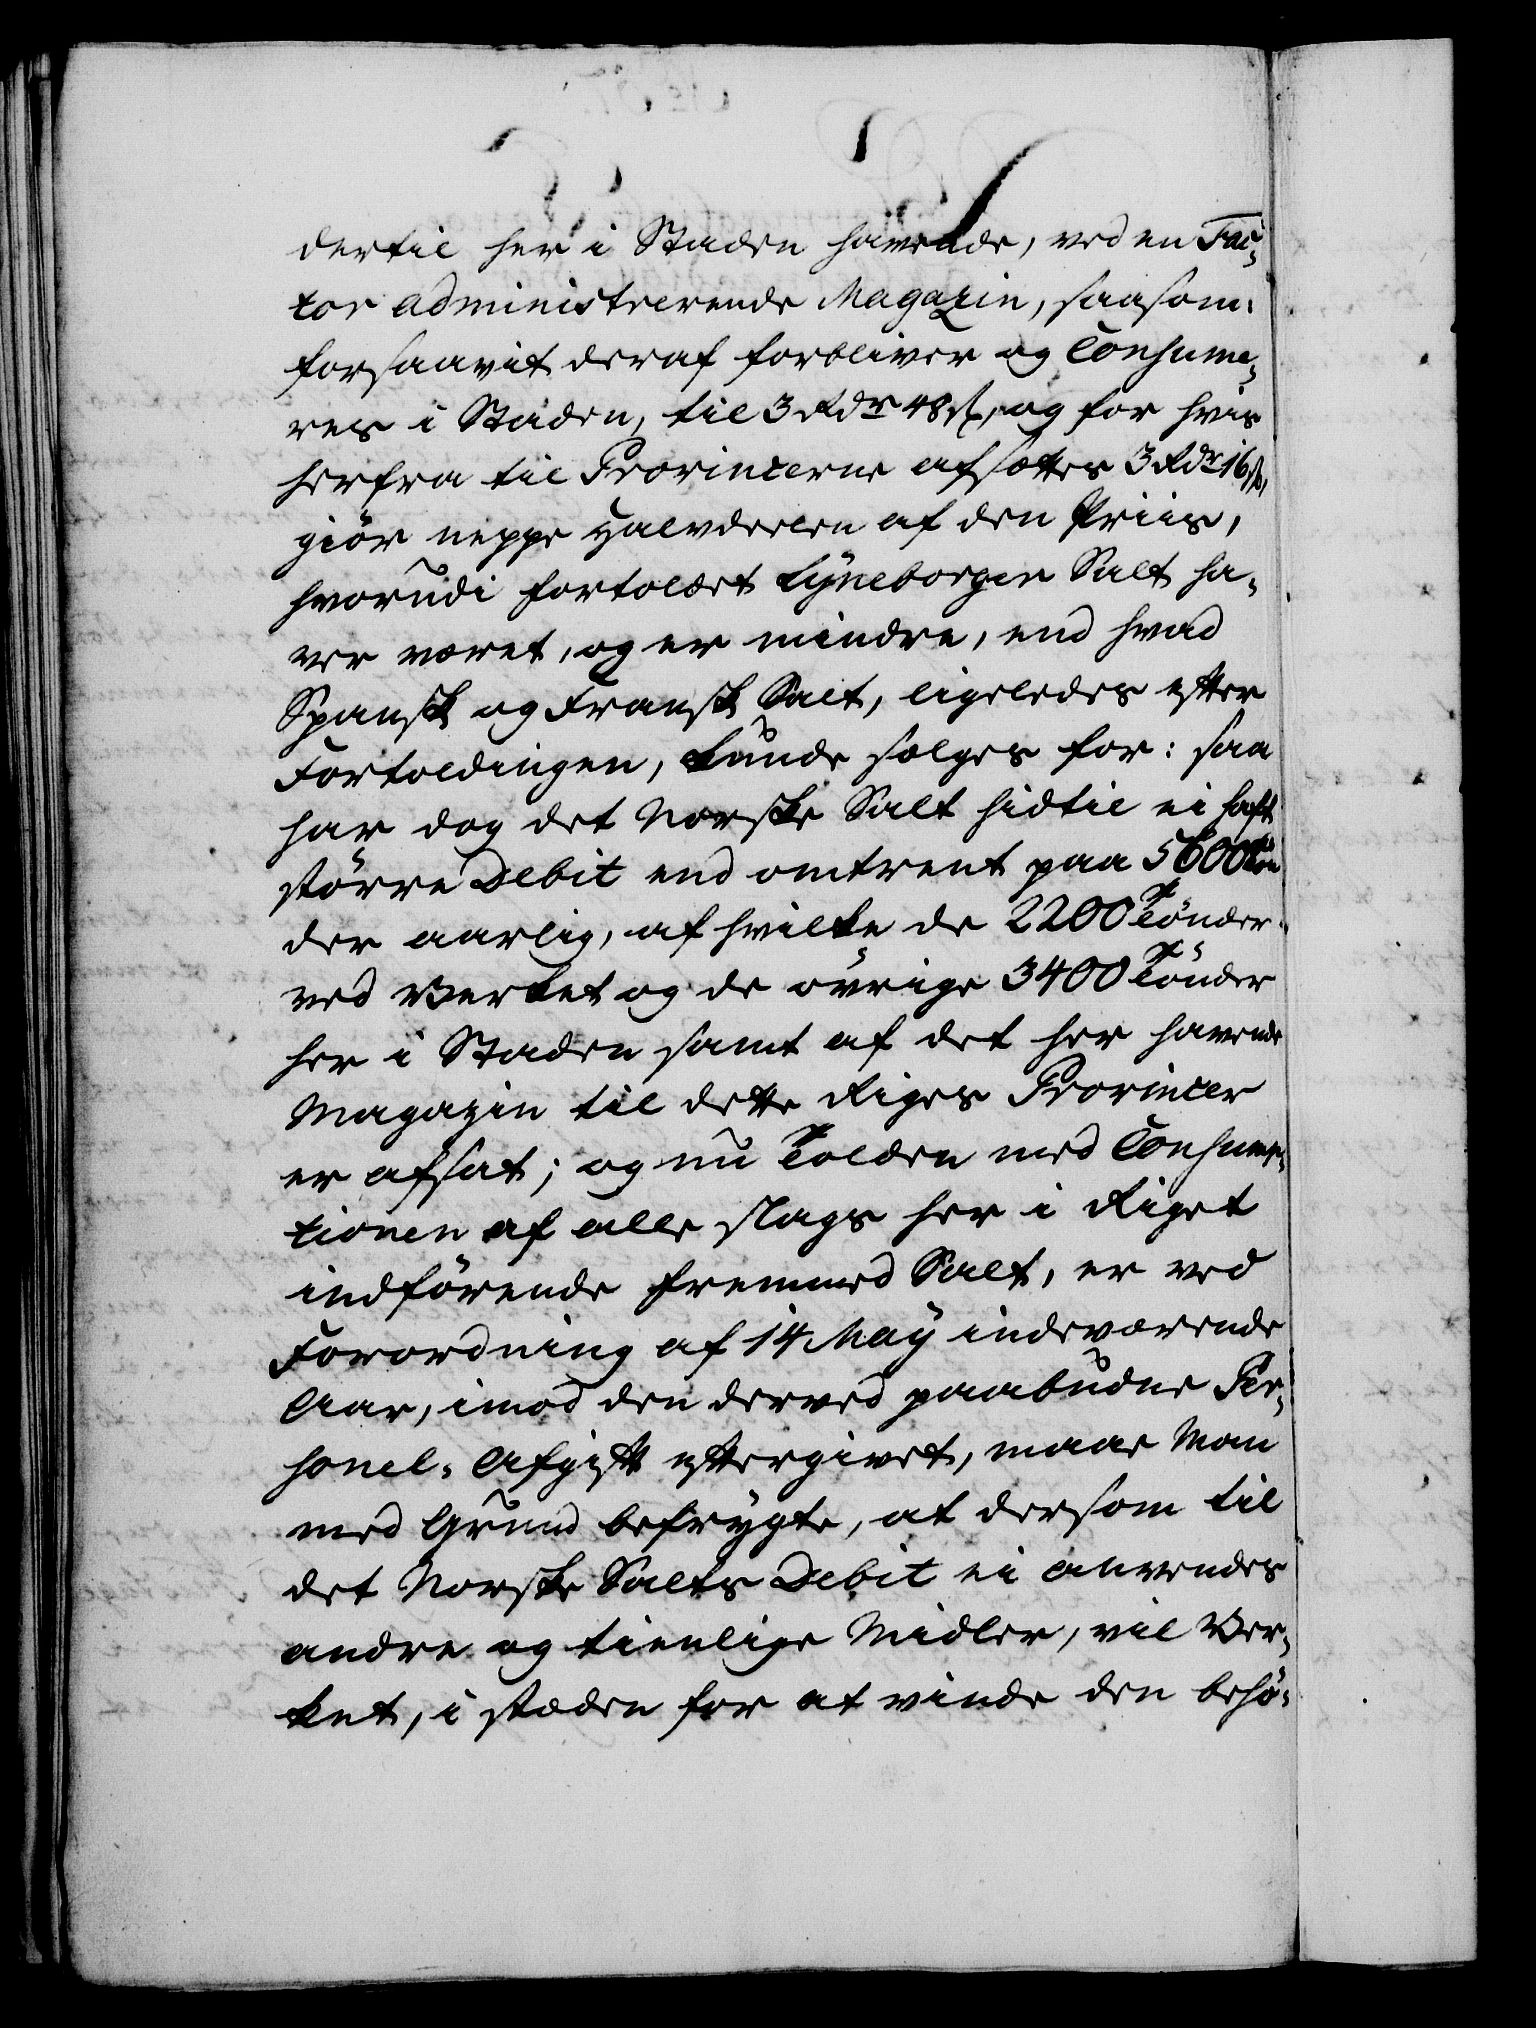 dertil her i Staden havende, ved en Fac-
tor administrerende Magazin, saasom:
forsaavit deraf forbliver og Consume-
res i Staden, til 3 Rdr 48 s, og for hvis
herfra til Provincerne afsættes 3 Rdr 16 s,
giör neppe Halvdeelen af den Priis,
hvorudi fortoldet Lyneborger Salt ha-
ver været, og er mindre, end hvad
Spansk og Fransk Salt, ligeledes efter
Fortoldingen, kunde sælges for: saa
har dog det Norske Salt hidtil ei haft
större Debit end omtrent paa 5600 Tön
der aarlig, af hvilke de 2200 Tönder
ved Verket og de övrige 3400 Tönder
her i Staden samt af det her havende
Magazin til dette Riges Provincer
er afsat; og nu Tolden med Consump-
tionen af alle slags her i Riget
indförende fremmed Salt, er ved
Forordning af 14 May indeværende
Aar, imod den derved paabudne Per-
sonel-Afgift eftergivet, maae Man
med Grund befrygte, at dersom til
det Norske Salts Debit ei anvendes
andre og tienlige Midler, vil Ver-
ket, i stæden for at vinde den behö-